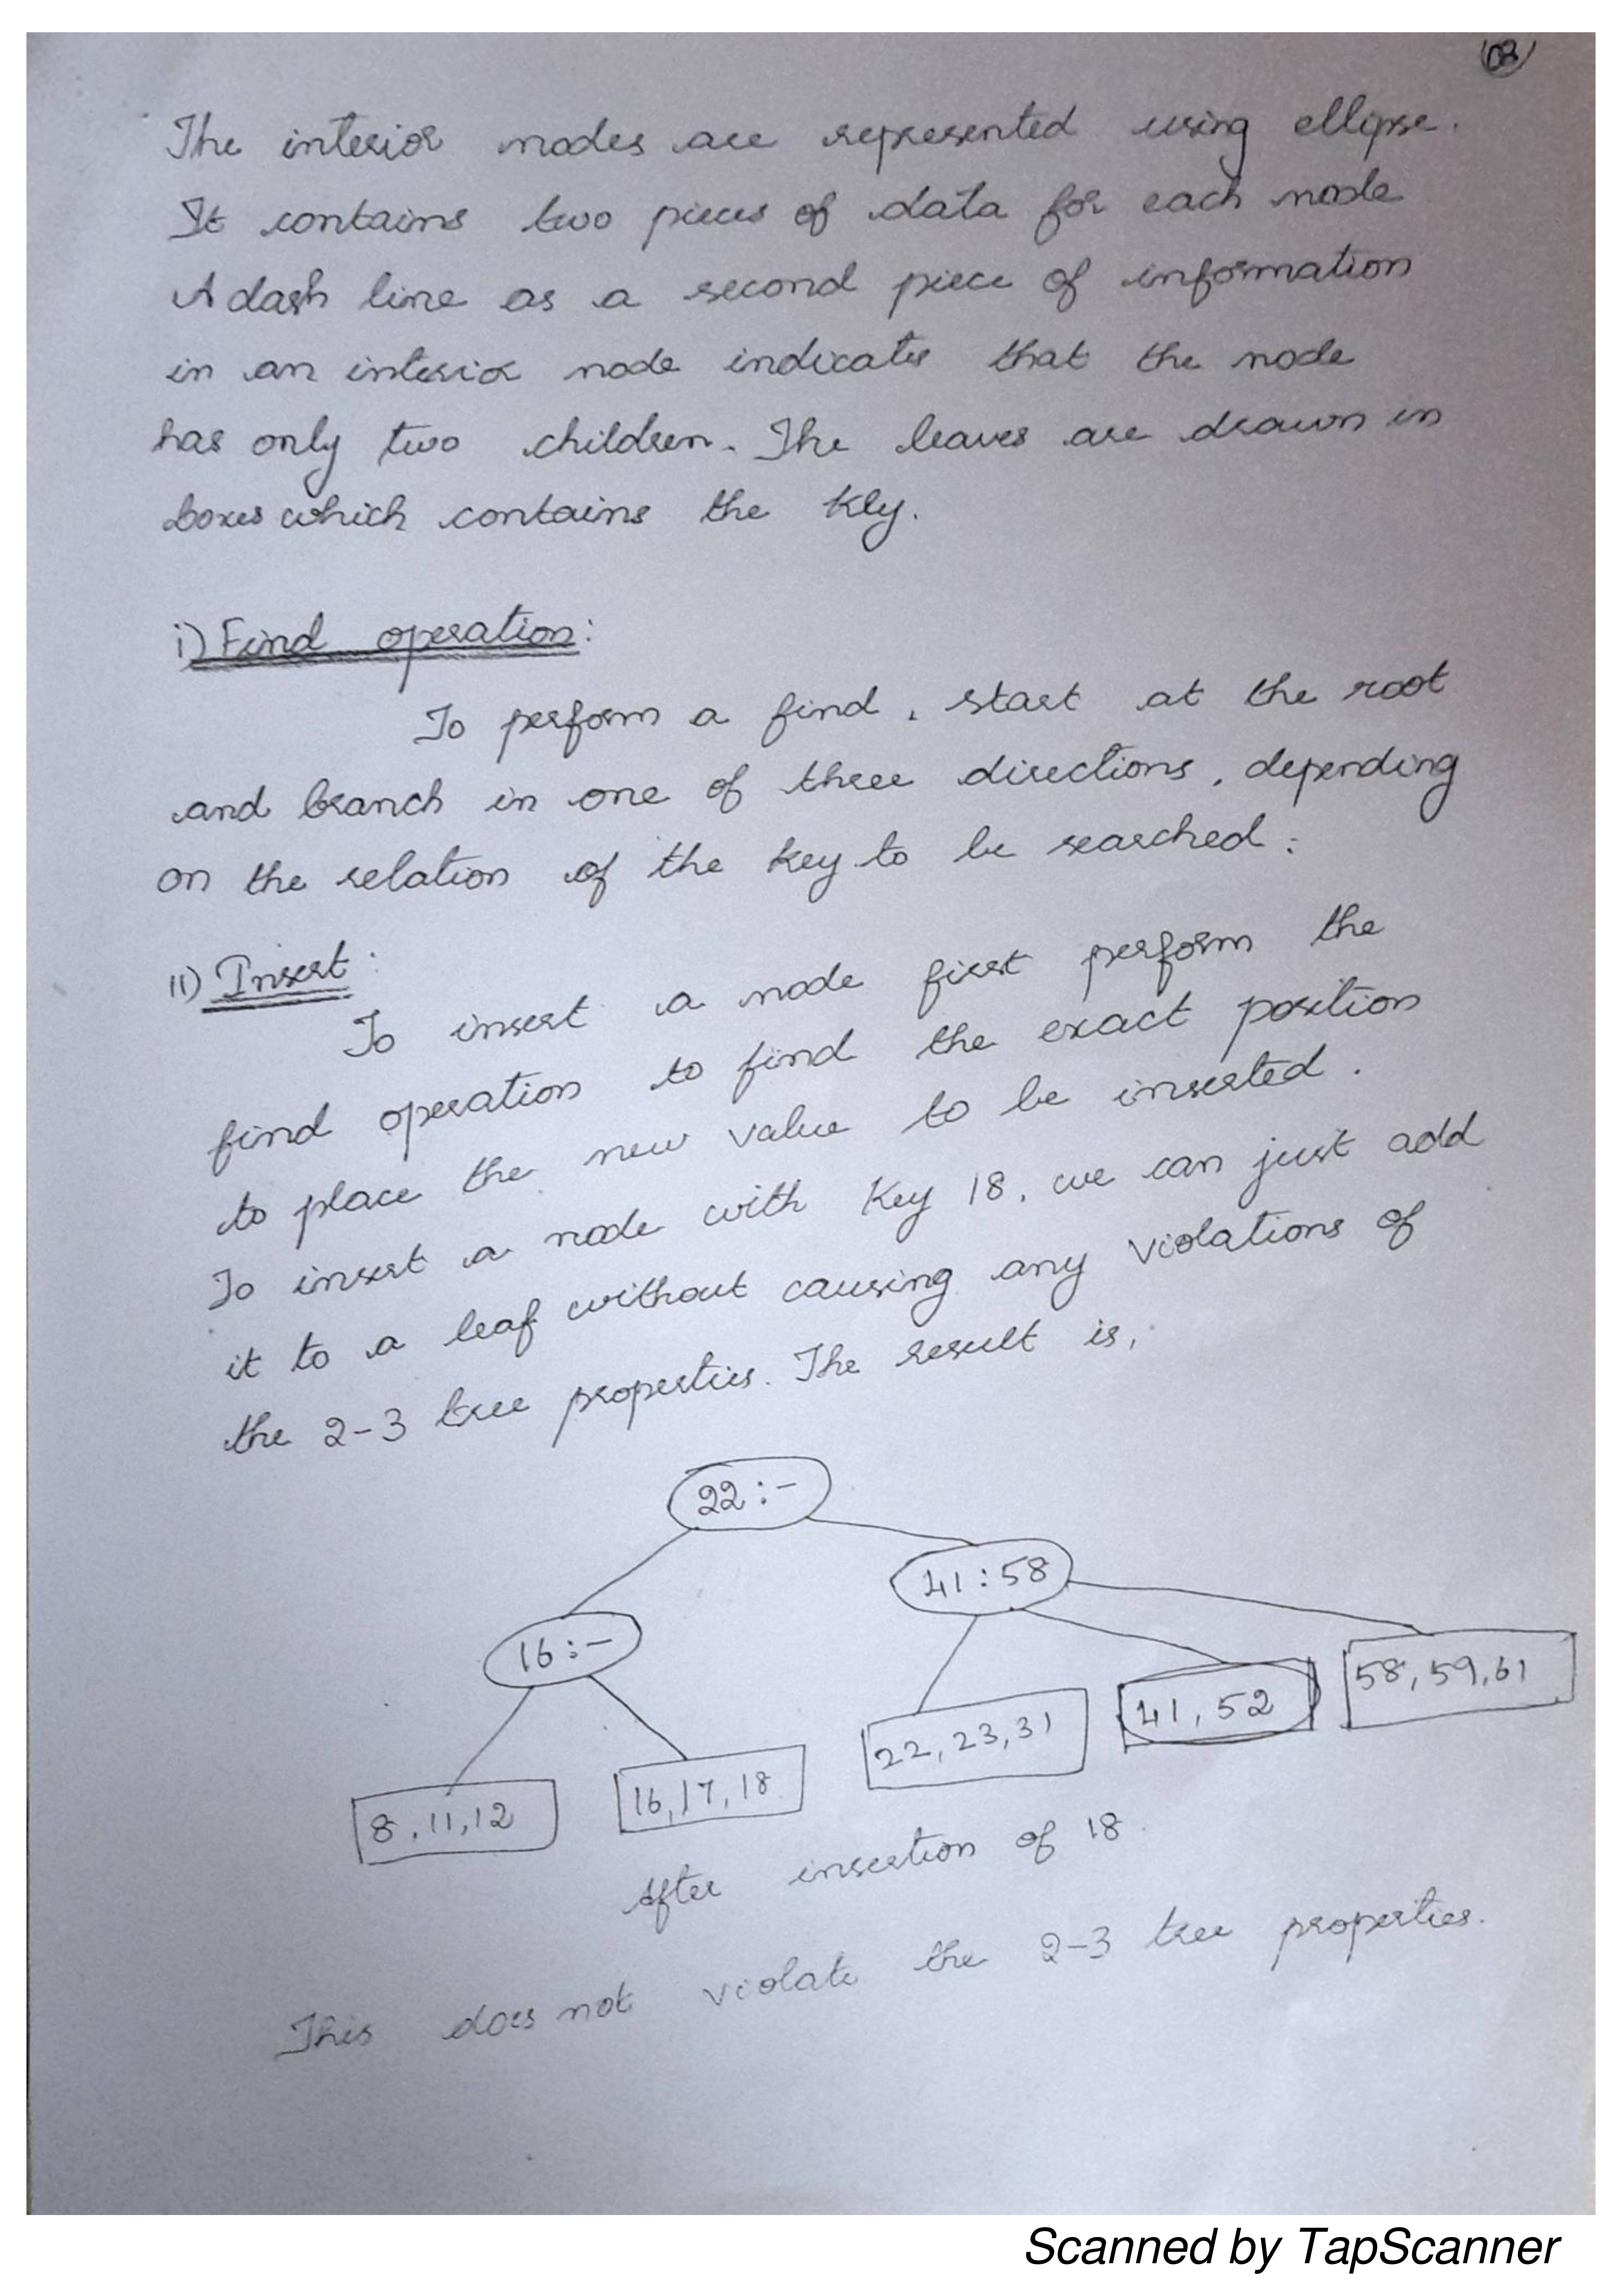 03
The interior nodes are represented using ellipse.
It contains two pieces of data for each node
A dash line as a second piece of information
in an interior node indicates that the node
has only two children. The leaves are drawn in
boxes which contains the key.
i) Find operation:
To perform a find, start at the root
and branch in one of three directions, depending
on the relation of the key to be searched:
II) Insert:
To insert a node first perform the
find operation to find the exact position
to place the new value to be inserted.
To insert a node with key 18, we can just add
it to a leaf without causing any violations of
the 2-3 tree properties. The result is,
22:-
41:58
16:-
58,59,61
41,52
22,23,31
16,17,18
8,11,12
After insertion of 18.
This does not violate the 2-3 tree properties.
Scanned by TapScanner